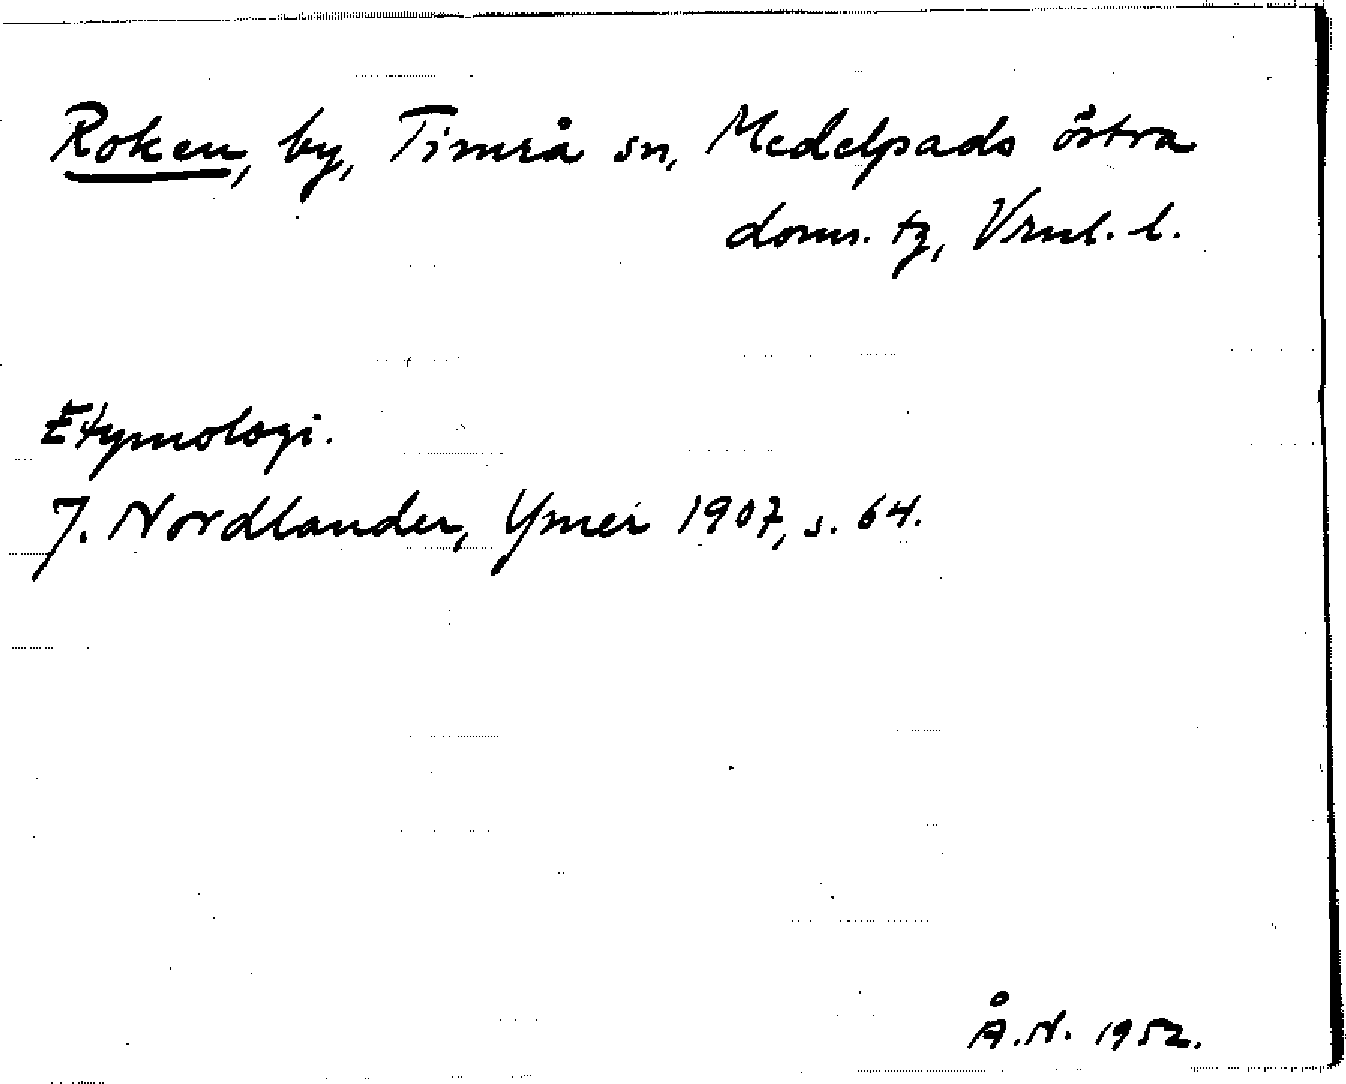 Roken, by, Timrå sn, Medelpads östra
doms. tg, Vrnl. l.
Etymologi.
J. Nordlander, Ymer 1907, s. 64.
Å.N. 1952.